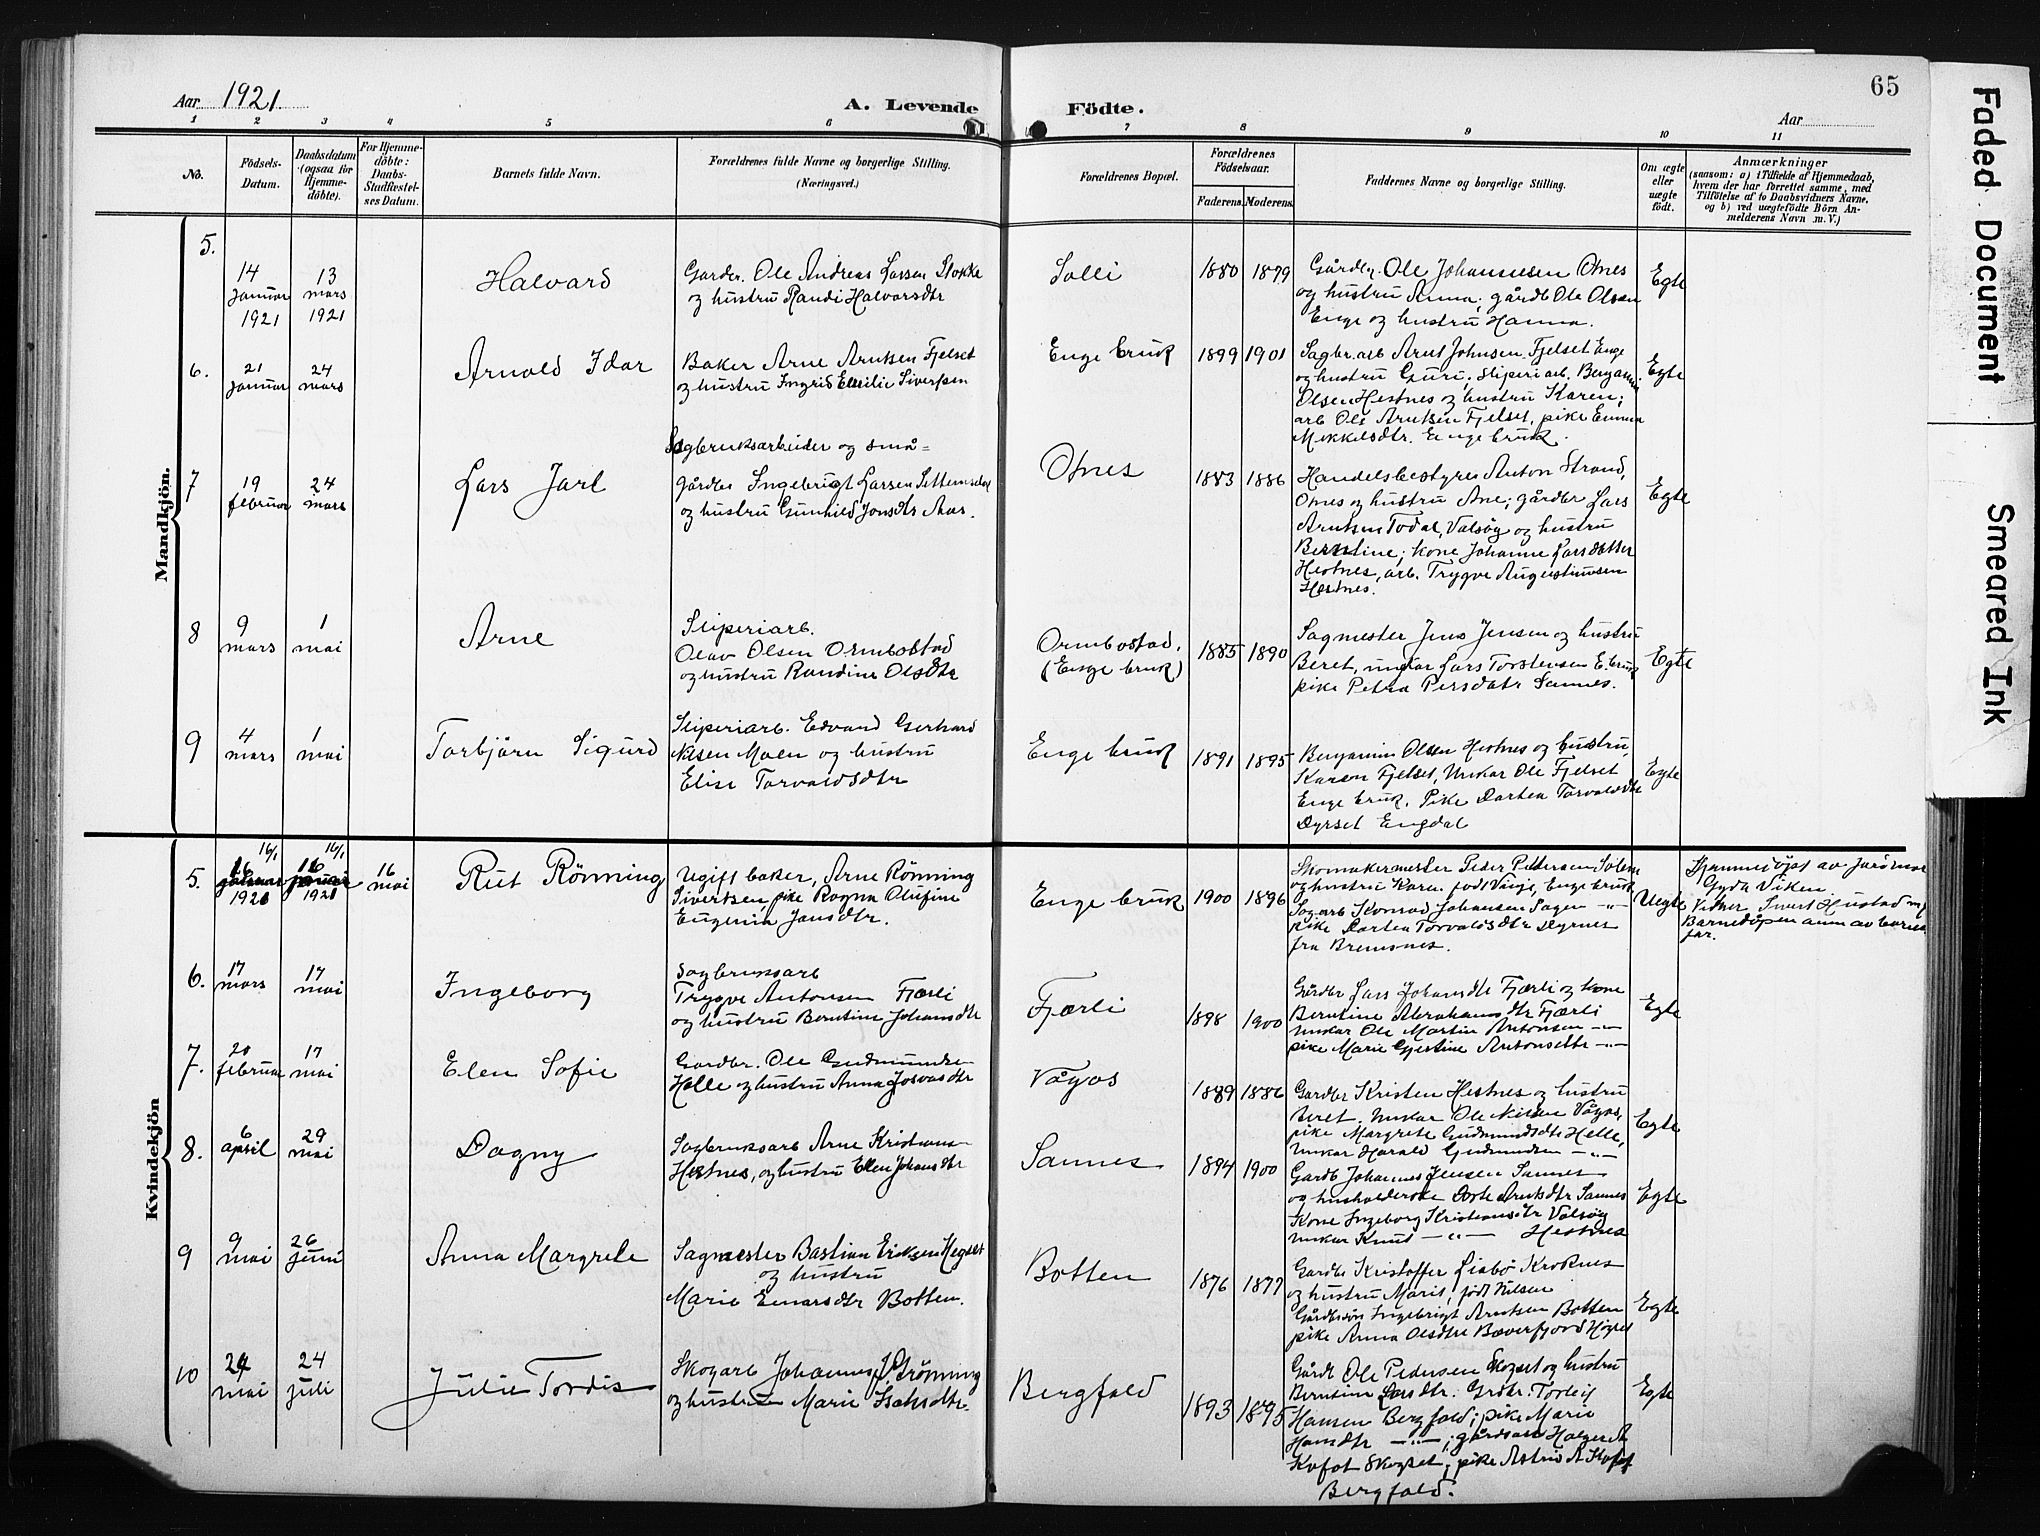 65
Aar 1921.
A. Levende Födte.
Aar
1 2 3 4 5 6 7 8 9 10 11
No.
Födsels-
Datum.
Daabsdatum
(ogsaa for
Hjemme-
döbte).
For Hjemme-
döbte:
Daabs-
Stadfæstel-
ses Datum.
Barnets fulde Navn.
Forældrenes fulde Navne og borgerlige Stilling.
(Næringsvei.)
Forældrenes Bopæl.
Forældrenes
Födselsaar.
Faderens. Moderens.
Faddernes Navne og borgerlige Stilling.
Om ægte
eller
uægte
födt.
Anmærkninger
(saasom: a) i Tilfælde af Hjemmedaab,
hvem der har forrettet samme, med
Tilföielse af to Daabsvidners Navne,
og b) ved uægtefödte Börn An-
melderens Navn m. V.)
Mandkjön.
5.
14
januar
1921
13
mars
1921
Halvard
Gardbr. Ole Andreas Larsen Stokke
og hustru Randi Halvorsdtr
Solli
1880 1879
Gårdbr. Ole Johannesen Otnes
og hustru Anna; gårdb Ole Olsen
Enge og hustru Hanna.
Egte
6.
21
januar
24
mars
Arnold Idar
Baker Arne Arntsen Fjelset
og hustru Ingrid Emilie Sivertsen
Enge bruk
1899 1901
Sagbr.arb Arnt Johnsen Fjelset Enge
og hustru Guri; Sliperiarb. Benjamin
Olsen Hestnes og hustru Karen;
arb Ole Arntsen Fjelset, pike Emma
Mikkelsdtr. Enge bruk.
Egte
7
19
februar
24
mars
Lars Jarl
Sagbruksarbeider og små-
gårdbr Ingebrigt Larsen Settemsdal
og hustru Gunhild Jonsdtr Aas.
Otnes
1883 1886
Handelsbestyrer Anton Strand,
Otnes og hustru Ane; gårdbr Lars
Arntsen Todal, Valsöy og hustru
Berntine; kone Johanne Larsdatter
Hestnes, arb. Trygve Augustinusen
Hestnes.
Egte
8
9
mars
1
mai
Arne
Sliperiarb.
Olav Olsen Ormbostad
og hustru Randine Olsdtr
Ormbostad.
(Enge bruk)
1885 1890
Sagmester Jens Jensen og hustru
Beret, ungkar Lars Torstensen E. bruk
pike Petra Persdatr Sannes.
Egte
9
4
mars
1
mai
Torbjörn Sigurd
Sliperiarb. Edvard Gerhard
Nilsen Moen og hustru
Elise Torvaldsdtr
Enge bruk
1891 1895
Benjamin Olsen Hestnes og hustru,
Karen Fjelset, Unkar Ole Fjelset
Enge bruk. Pike Dortea Torvaldsdtr
Dyrset Engdal
Egte
Kvindekjön
5.
16/1
1920
16/1
1921
16
mai
Rut Rönning
Ugift baker, Arne Rönning
Sivertsen, pike Ragna Olufine
Eugenia Jansdtr.
Enge bruk
1900 1896
Skomakermester Peder Pedersen Solem
og hustru Karen födt Vaage, Enge bruk
Sagarb Konrad Johansen Sagen —"—
pike Dortea Torvaldsdtr Dyrnes
fra Bremsnes.
Uegte
Hjemmedöpt av jordmor
Gyda Viken.
Vidner Sivert Hustad
Barnedåpen anm av barnets
far.
6.
17
mars
17
mai
Ingeborg
Sagbruksarb
Trygve Antonsen Fjærli
og hustru Berntine Johansdtr
Fjærli
1898 1900
Gårdbr Lars Johansdtr Fjærli og kone
Berntine Abrahamsdtr Fjærli
Unkar Ole Martin Antonsen —"—
pike Marie Gjertine Antonsdtr —"—
Egte
7.
20
februar
17
mai
Elen Sofie
Gardbr. Ole Gudmundsen
Helle og hustru Anna Josvasdtr
Vågos
1889 1886
Gardbr Kristen Hestnes og hustru
Beret, Unkar Ole Nilsen Vågos,
pike Margrete Gudmundsdtr Helle,
Unkar Harald Gudmundsen —"—
Egte
8.
6
april
29
mai
Dagny
Sagbruksarb Arne Kristians-
Hestnes, og hustru Ellen Johansdtr
Sannes
1894 1900
Gardb Johannes Jensen Sannes
og husholderske Dorte Arntsdtr Sannes
Kone Ingeborg Kristiansdtr Valsöy
Unkar Knut —"— Hestnes
Egte
9
9
mai
26
juni
Anna Margrete
Sagmester Bastian Eriksen Hegset
og hustru
Marie Einarsdtr Botten.
Botten
1876 1877
Gardbr Kristoffer Liabö Kroknes
og hustru Marit, födt Nilsen
Gårdbrsön Ingebrigt Arntsen Botten
pike Anna Olsdtr Bæverfjord
Egte
10
24
mai
24
juli
Julie Tordis
Skogarb Johannes J. Grönning
og hustru Marie Isaksdtr.
Bergfald
1893 1895
Gårdb Ole Pedersen Skogset og hustru
Berntine Larsdtr. Grdbr. Torleif
Hansen Bergfald; pike Marie
Hansdtr —"—; gårdsarb Halgeir A
Kofot Skogset; pike Astrid A Kofot
Bergfald.
Egte
Faded Document
Smeared Ink